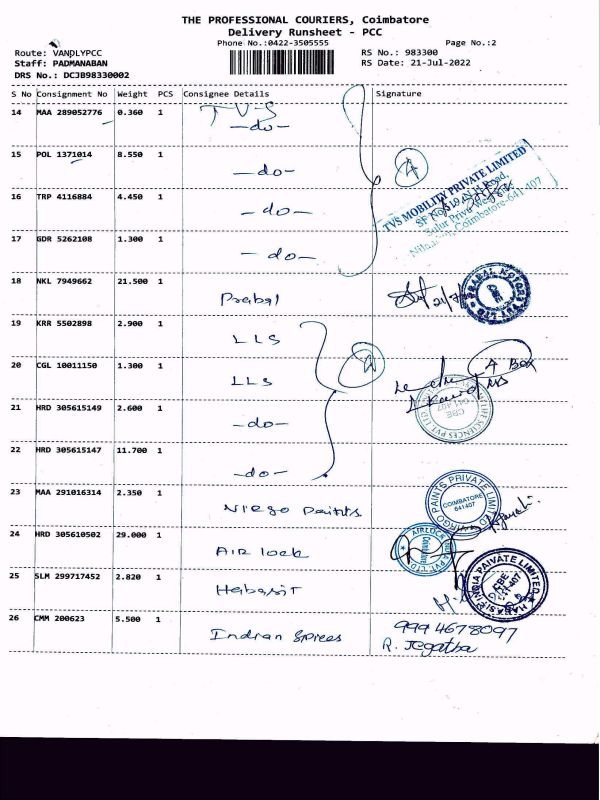 THE PROFESSIONAL COURIERS, Coimbatore
Delivery Runsheet - PCC
Phone No.:0422-3505555 Page No.:2
Route: VANDLYPCC RS No.: 983300
Staff: PADMANABAN RS Date: 21-Jul-2022
DRS No.: DCJB98330002
S No Consignment No Weight PCS Consignee Details Signature
14 MAA 289052776 0.360 1 TVS
-do-
15 POL 1371014 8.550 1 -do- 4
TVS MOBILITY PRIVATE LIMITED
Coimbatore-641 407
16 TRP 4116884 4.450 1 -do-
17 GDR 5262108 1.300 1 -do-
18 NKL 7949662 21.500 1 Prabal
19 KRR 5502898 2.900 1 LLS
20 CGL 10011150 1.300 1 LLS 4 4 Box
21 HRD 305615149 2.600 1 -do-
LIFE SCIENCES PVT. LTD
CBE
641 407
22 HRD 305615147 11.700 1 -do-
23 MAA 291016314 2.350 1 Virgo Paints
VIRGO PAINTS PRIVATE LIMITED
COIMBATORE
641407
24 HRD 305610502 29.000 1 Air lock
AIRLOCK
Coimbatore
25 SLM 299717452 2.820 1 Habasit
HABASIT INDIA PRIVATE LIMITED
CBE
641-407
26 CMM 200623 5.500 1 Indian Spices 999 4678097
R. Jegatha